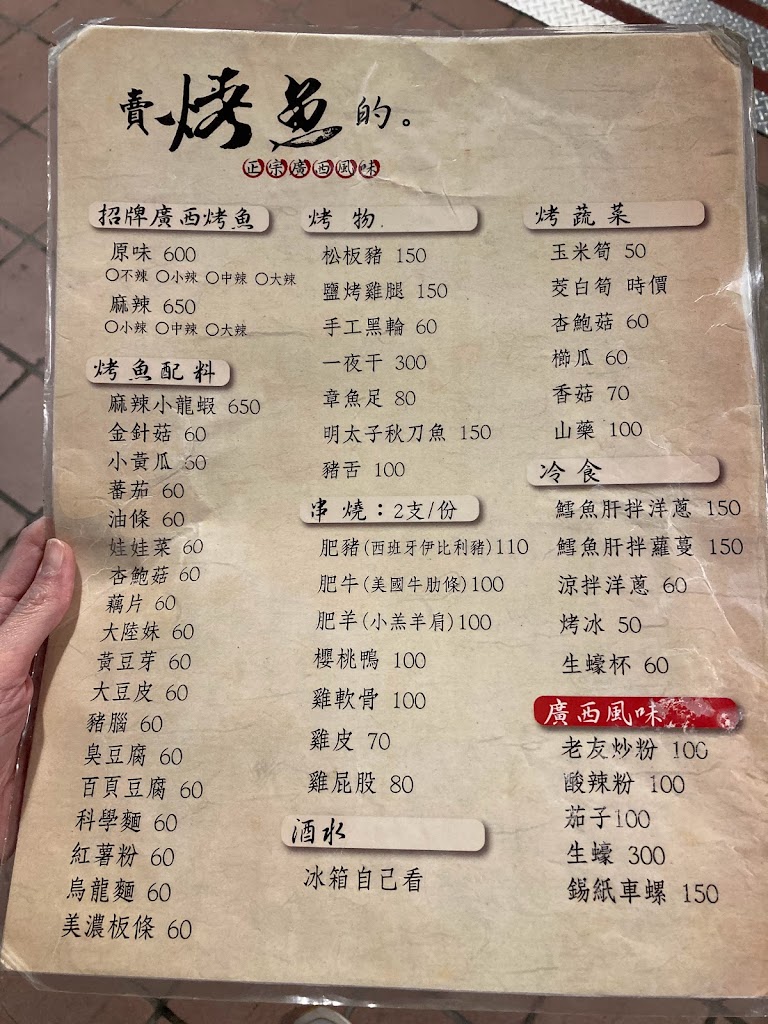 賣烤魚的。
正宗廣西風味
招牌廣西烤魚
原味 600
○不辣 ○小辣 ○中辣 ○大辣
麻辣 650
○小辣 ○中辣 ○大辣
烤魚配料
麻辣小龍蝦 650
金針菇 60
小黃瓜 60
蕃茄 60
油條 60
娃娃菜 60
杏鮑菇 60
藕片 60
大陸妹 60
黃豆芽 60
大豆皮 60
豬腦 60
臭豆腐 60
百頁豆腐 60
科學麵 60
紅薯粉 60
烏龍麵 60
美濃板條 60
烤物
松板豬 150
鹽烤雞腿 150
手工黑輪 60
一夜干 300
章魚足 80
明太子秋刀魚 150
豬舌 100
串燒：2支/份
肥豬(西班牙伊比利豬)110
肥牛(美國牛肋條)100
肥羊(小羔羊肩)100
櫻桃鴨 100
雞軟骨 100
雞皮 70
雞屁股 80
酒水
冰箱自己看
烤蔬菜
玉米筍 50
茭白筍 時價
杏鮑菇 60
櫛瓜 60
香菇 70
山藥 100
冷食
鱈魚肝拌洋蔥 150
鱈魚肝拌蘿蔓 150
涼拌洋蔥 60
烤冰 50
生蠔杯 60
廣西風味
老友炒粉 100
酸辣粉 100
茄子100
生蠔 300
錫紙車螺 150